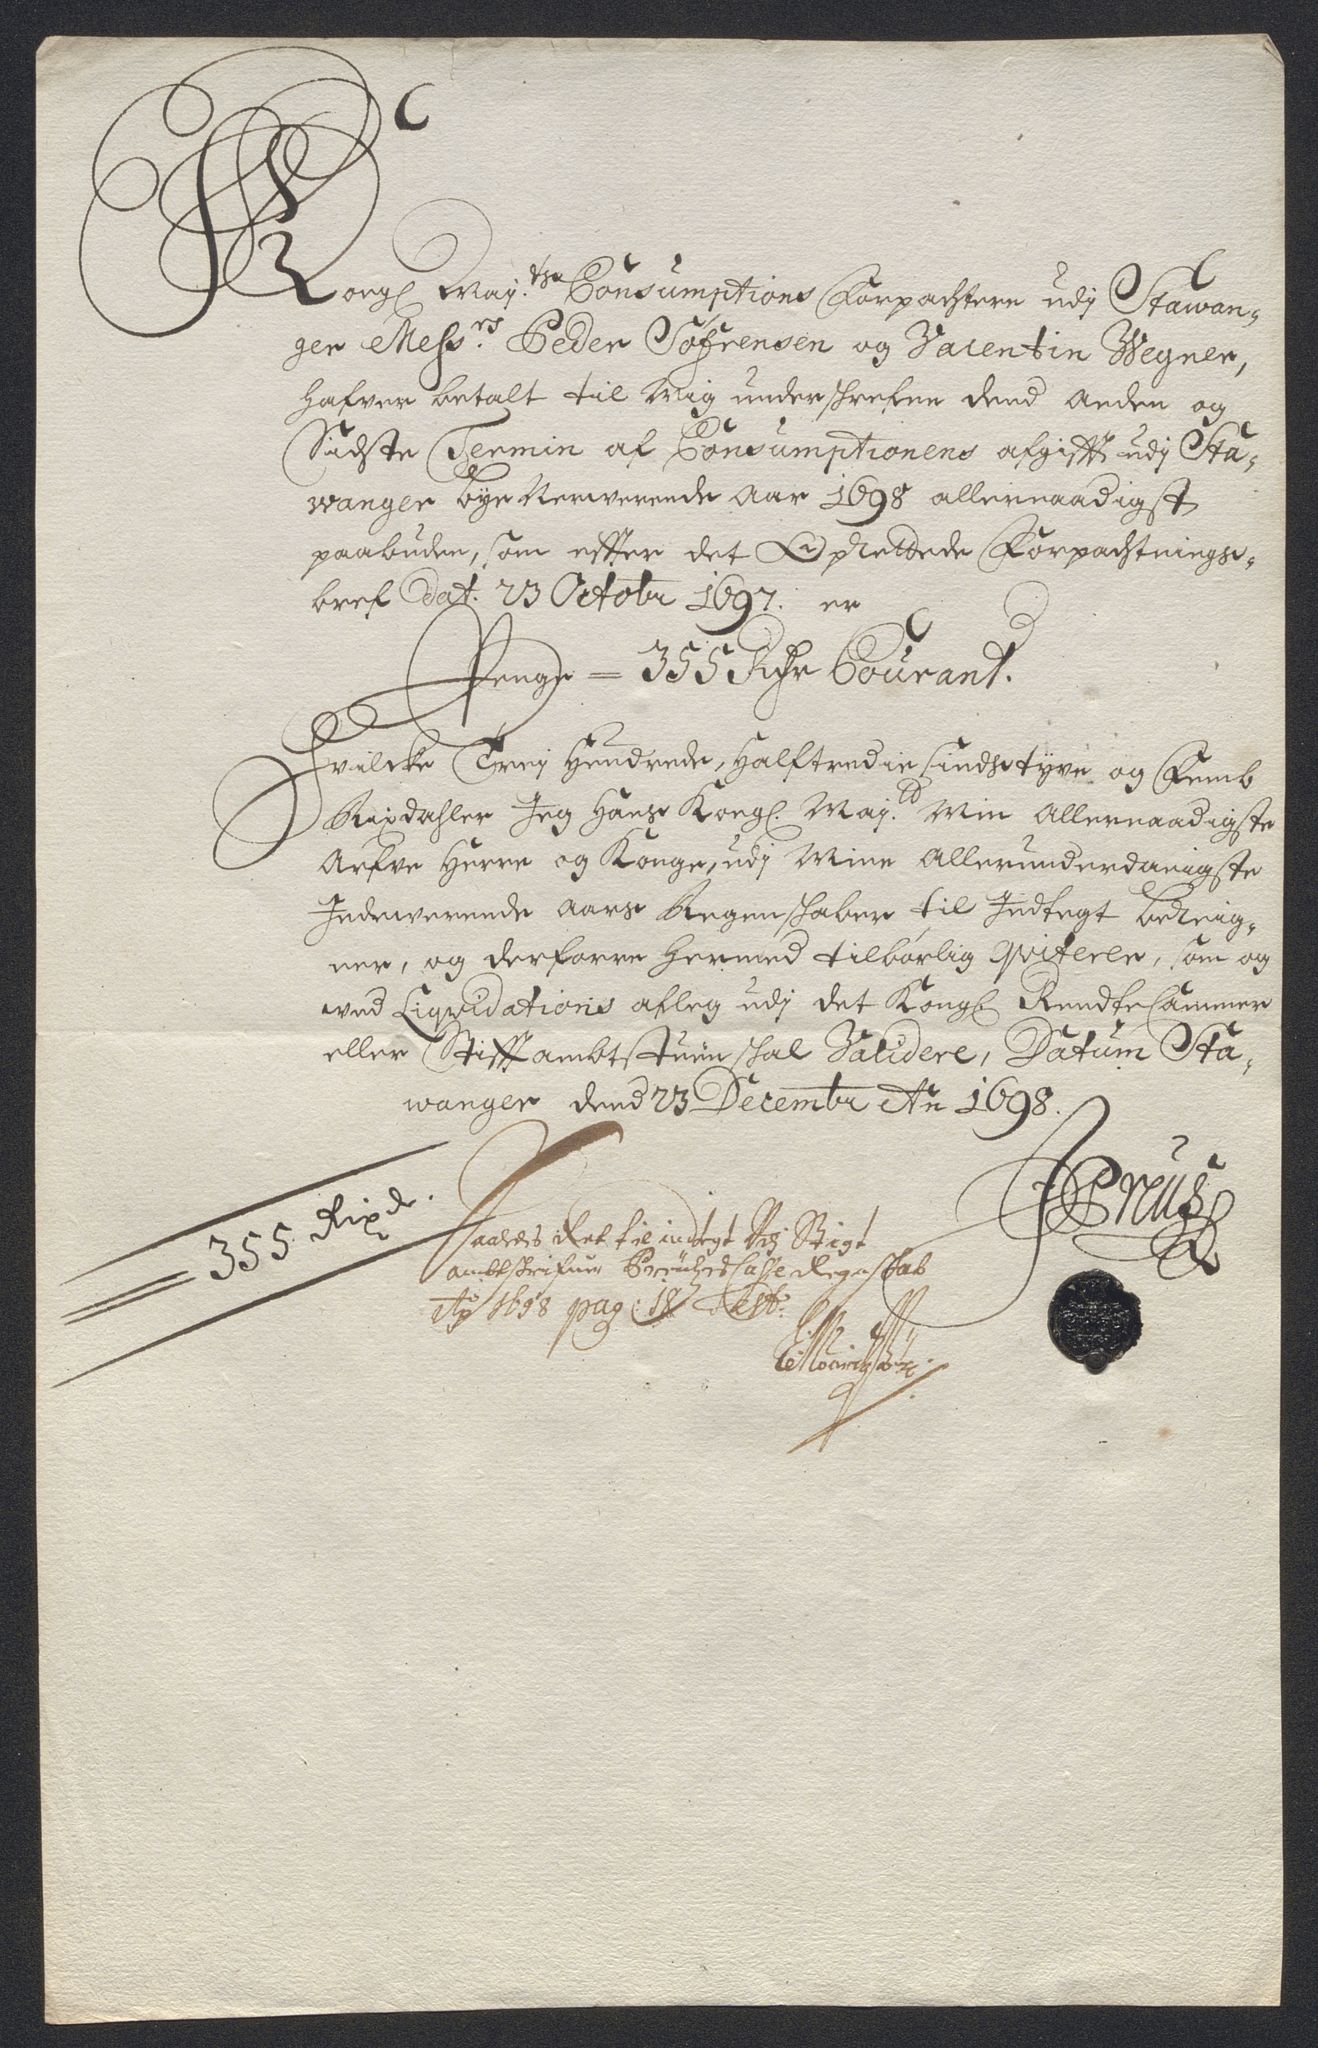 Kongl May.ths Consumptions Forpachtere udj Stawan-
ger Mess.rs Peder Söfrensen og Valentin Wegner,
hafver betalt til Mig underschrefne dend Anden og
Sidste Termin af Consumptionens afgifft udj Sta-
wanger bye Nerwerende Aar 1698 allernaadigst
paabuden, som effter det Oprettede Forpachtnings-
bref Dat. 23 Octobr 1697. er
Penge = 355 Rdr Courant.
Hvilcke Trej Hundrede, Halftredie Sindstyve og Femb
Rixdahler Jeg Hans Kongl. May.tt Min Allernaadigste
Arfve Herre og Konge, udj Mine Allerunderdanigste
Indewerende Aars Regenschaber til Indtegt bereig-
ner, og derforre hermed tilbørlig Qviterer, som og
ved Liqvidations afleg udj det Kongl Rendte Cammer
eller Stifftambtstuen schal Validere, Datum Sta-
wanger dend 23 Decembr An 1698.
JPreus
355 Rixdr.
Saaledis Rett til indtegt udj Stigt
ambtschrifver Preuhes Casse Regnschab
Ao 1698 pag: 18 Test.